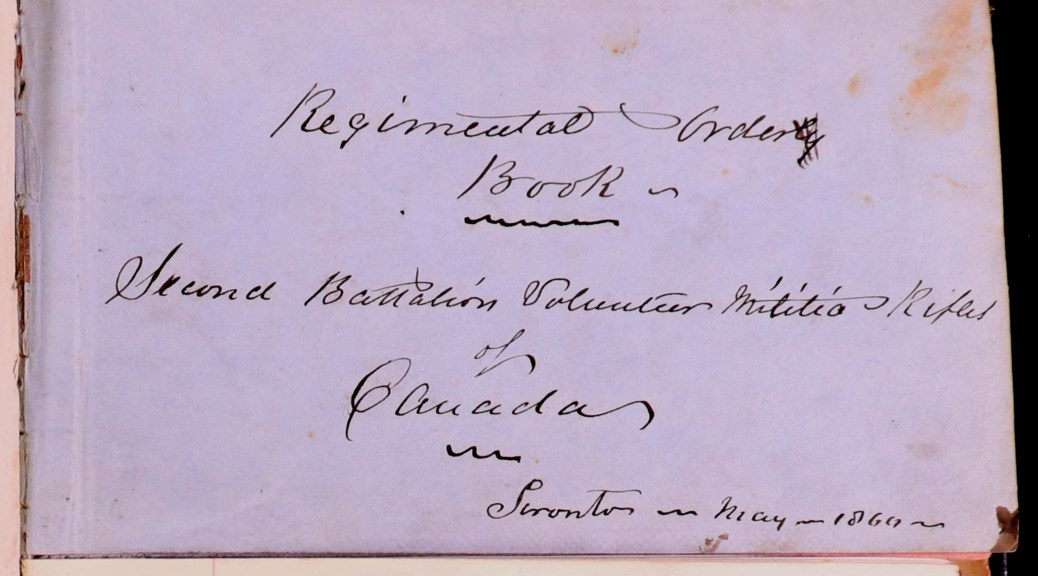 Regimental Order
Book
Second Battalion Volunteer Militia Rifles
of
Canada
Toronto May 1860